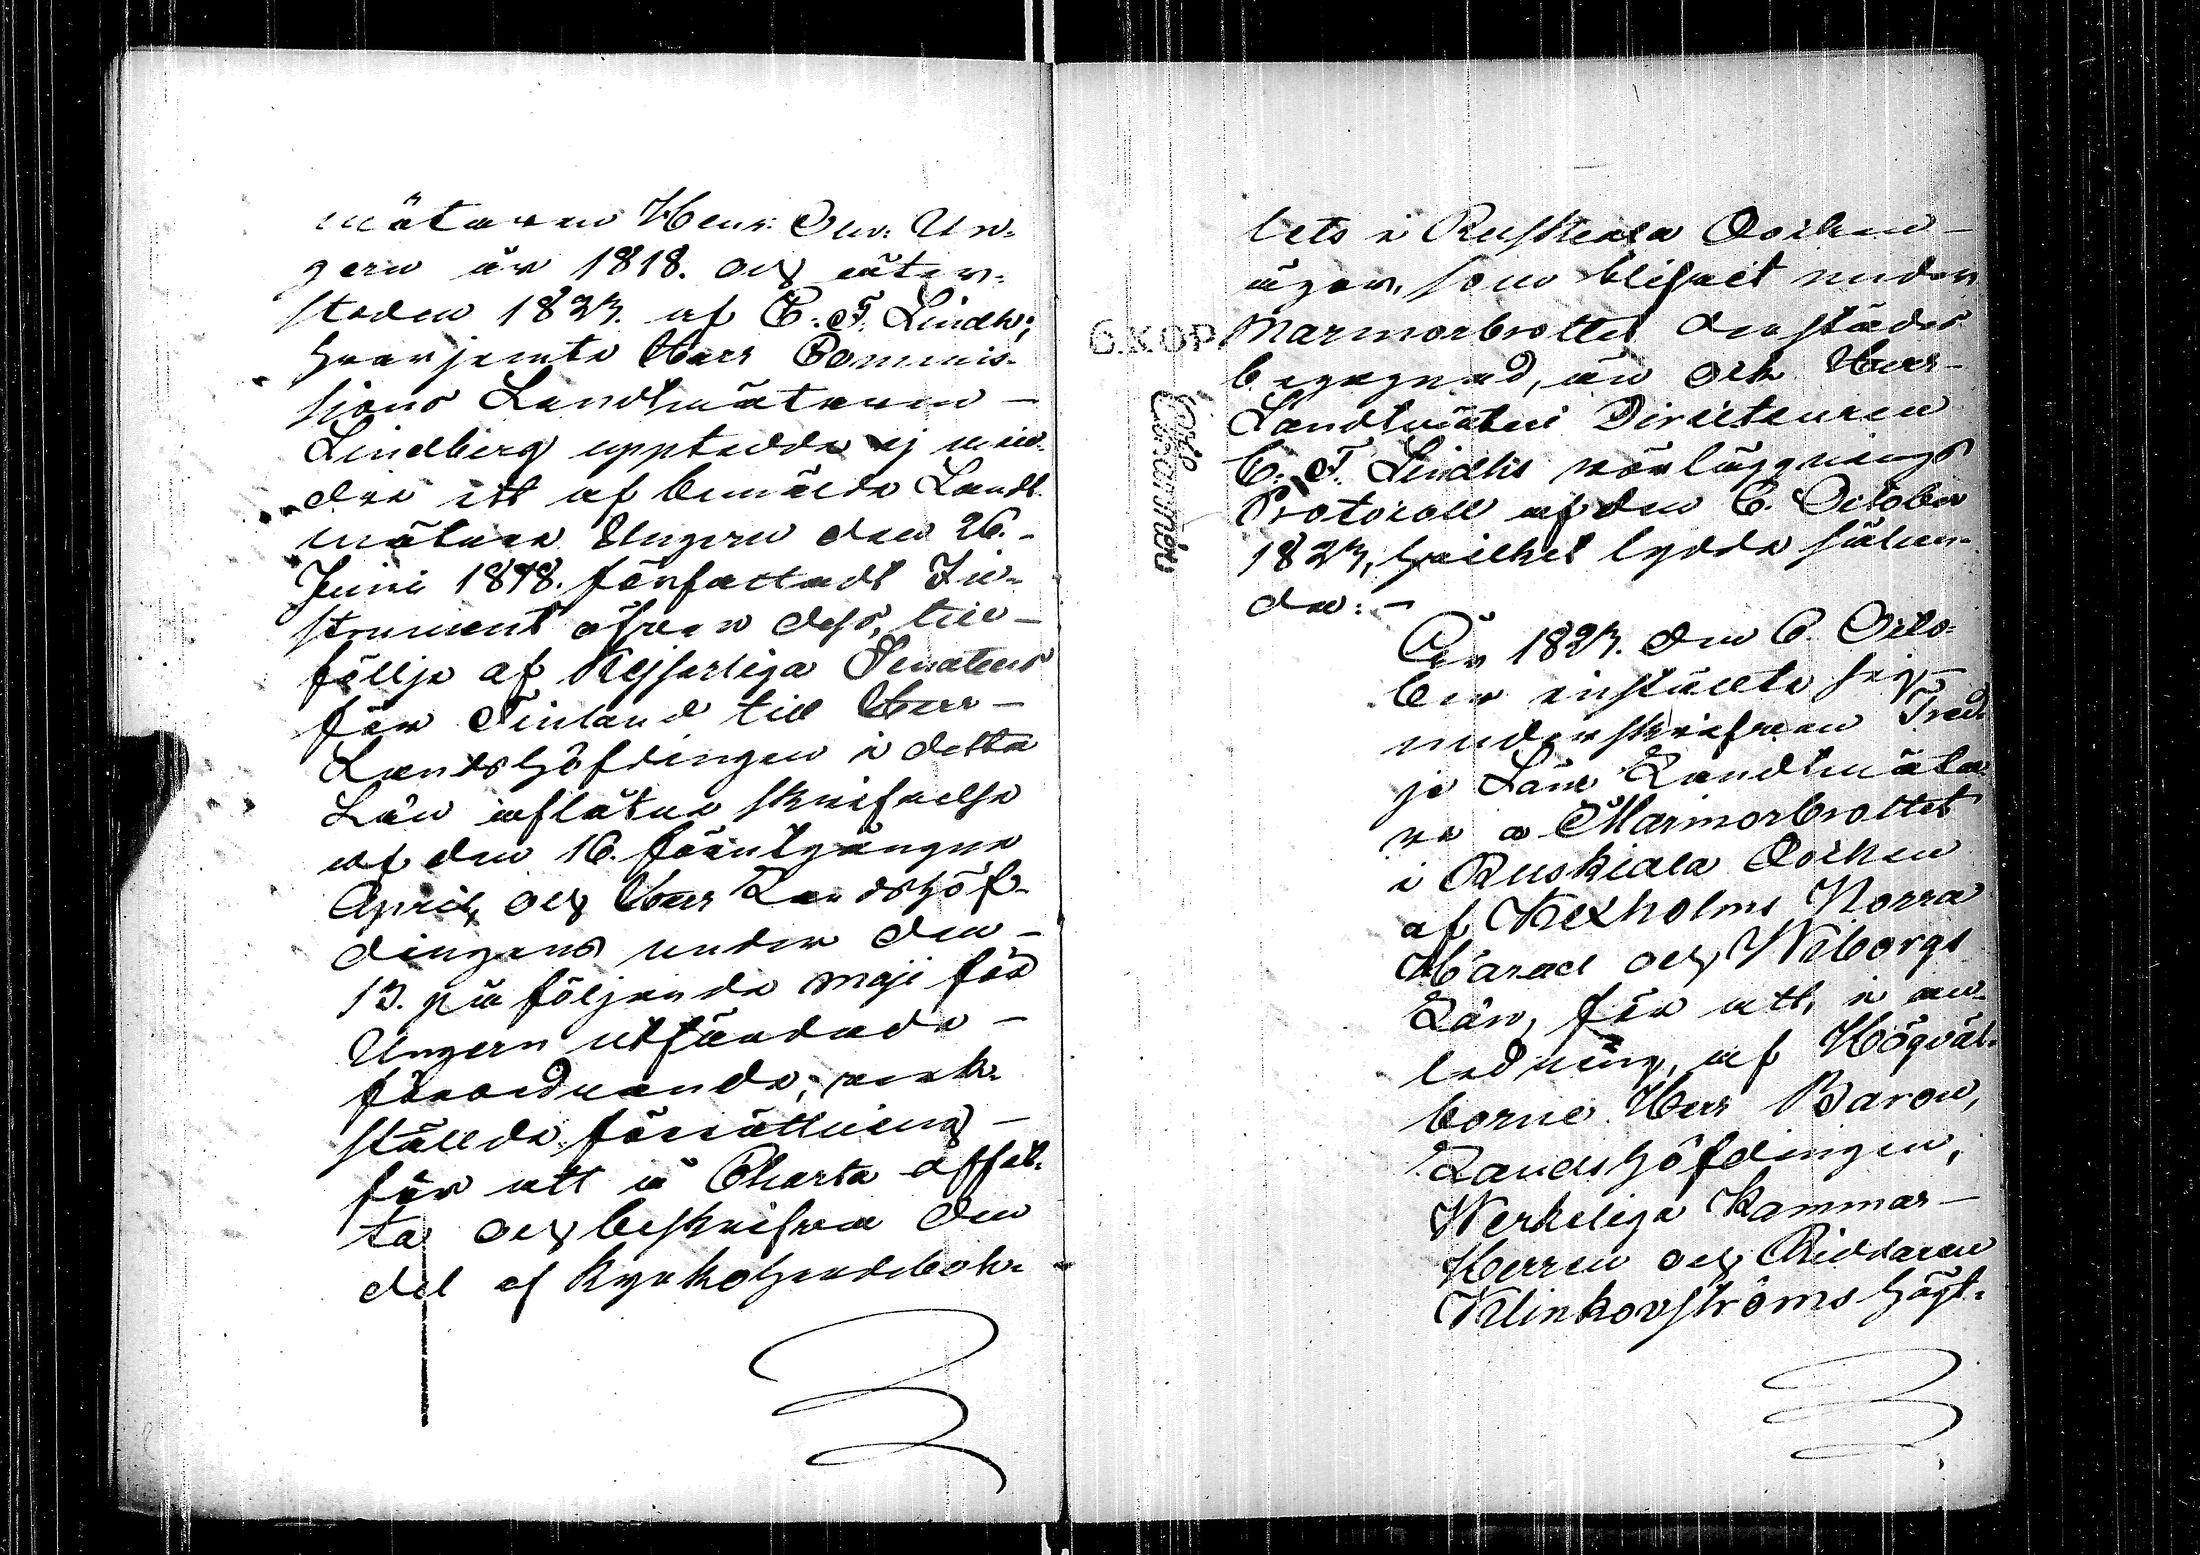 mätaren Henr. Joh. Un-
gern år 1818. och åter-
stoden 1827. af C. F. Lindh;
hvarjemte Herr Commis-
sions Landtmätaren -
Lindberg upptedde ej min-
dre ett af bemälde Landt-
mätare Ungern den 26. -
Juni 1818. författadt In-
strument öfver dess, till -
följje af Kejserliga Senatens
för Finland till Herr -
Landshöfdingen i detta
Län aflåtna skrifvelse
af den 16. förutgångne
April, och Herr Landshöf-
dingens under den -
13. på följande Maji för
Ungern utfärdade -
förordnande, verk-
ställde förrättning -
för att å Charta affat-
ta och beskrifva den
del af Kyrkoherdebohl-
lets i Ruskeala Socken -
ägor, som blifvit under
Marmorbrottet derstädes
begagnad, än ock Herr -
Landtmäteri Directeuren
C. F. Lindhs rörläggnings
Protocoll af den 6. October
1827, hvilket lydde sålun-
da: -
År 1827. den 6. Octo-
ber inställte sig -
underskrifven Tred-
je Läns Landtmäta-
re a Marmorbrottet
i Ruskiala Socken
af Kexholms Norra
Härad och Wiborgs
Län, för att, i an-
ledning, af Högväl-
borne Herr Baron,
Landshöfdingen,
Werkeliga Kammar -
Herren och Riddaren
Klinkovströms högt-
G.KOP.